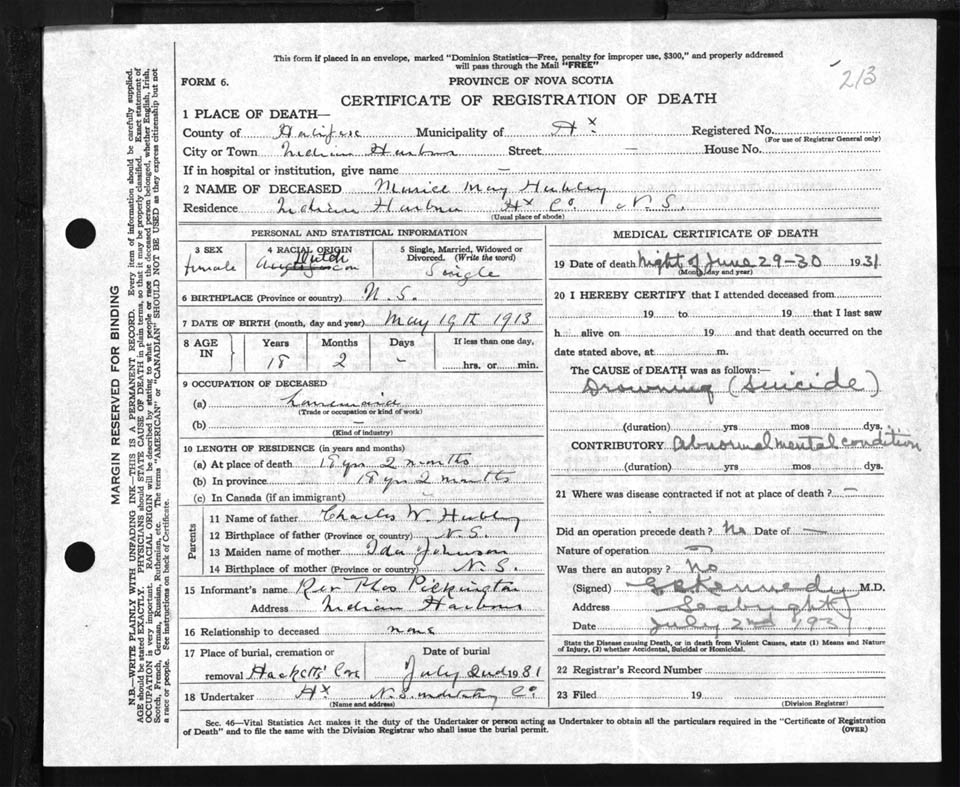 This form if placed in an envelope, marked "Dominion Statistics—Free, penalty for improper use, $300," and properly addressed
will pass through the Mail "FREE"
213
FORM 6. PROVINCE OF NOVA SCOTIA
CERTIFICATE OF REGISTRATION OF DEATH
1 PLACE OF DEATH—
County of Halifax Municipality of Hx. Registered No.
(For use of Registrar General only)
City or Town Indian Harbour Street — House No.
If in hospital or institution, give name —
2 NAME OF DECEASED May Hubley
Residence Indian Harbour Hx Co. N.S.
(Usual place of abode)
PERSONAL AND STATISTICAL INFORMATION
3 SEX 4 RACIAL ORIGIN 5 Single, Married, Widowed or
Divorced. (Write the word)
female Dutch Single
6 BIRTHPLACE (Province or country) N.S.
7 DATE OF BIRTH (month, day and year) May 19th 1913
8 AGE IN Years Months Days If less than one day,
18 2 - hrs. or min.
9 OCCUPATION OF DECEASED
(a)
(Trade or occupation or kind of work)
(b) —
(Kind of industry)
10 LENGTH OF RESIDENCE (in years and months)
(a) At place of death 18 yrs 2 months
(b) In province 18 yrs 2 months
(c) In Canada (if an immigrant)
Parents
11 Name of father Charles W. Hubley
12 Birthplace of father (Province or country) N.S.
13 Maiden name of mother Ida Johnson
14 Birthplace of mother (Province or country) N.S.
15 Informant's name Rev Thos Pilkington
Address Indian Harbour
16 Relationship to deceased none
17 Place of burial, cremation or Date of burial
removal Hacketts Cove July 2nd 1931
18 Undertaker Hx N.S. Co.
(Name and address)
MEDICAL CERTIFICATE OF DEATH
19 Date of death Night of June 29-30 1931
(Month, day and year)
20 I HEREBY CERTIFY that I attended deceased from
19 to 19 that I last saw
h alive on 19 and that death occurred on the
date stated above, at m.
The CAUSE of DEATH was as follows:—
Drowning (Suicide)
(duration) yrs mos dys.
CONTRIBUTORY Abnormal mental condition
(duration) yrs mos dys.
21 Where was disease contracted if not at place of death? —
Did an operation precede death? No Date of —
Nature of operation —
Was there an autopsy? No
(Signed) Kennedy M.D.
Address Seabright
Date July 2nd 1931
State the Disease causing Death, or in death from Violent Causes, state (1) Means and Nature
of Injury, (2) whether Accidental, Suicidal or Homicidal.
22 Registrar's Record Number
23 Filed 19
(Division Registrar)
Sec. 46—Vital Statistics Act makes it the duty of the Undertaker or person acting as Undertaker to obtain all the particulars required in the "Certificate of Registration
of Death" and to file the same with the Division Registrar who shall issue the burial permit. (OVER)
MARGIN RESERVED FOR BINDING
N.B.—WRITE PLAINLY WITH UNFADING INK—THIS IS A PERMANENT RECORD. Every item of information should be carefully supplied.
AGE should be stated EXACTLY. PHYSICIANS should STATE CAUSE OF DEATH in plain terms, so that it may be properly classified. Exact statement of
OCCUPATION is very important. RACIAL ORIGIN will be described by stating to what people or race the deceased person belonged, whether English, Irish,
Scotch, French, German, Russian, Ruthenian, etc. The terms "AMERICAN" or "CANADIAN" SHOULD NOT BE USED as they express citizenship but not
a race or people. See instructions on back of Certificate.